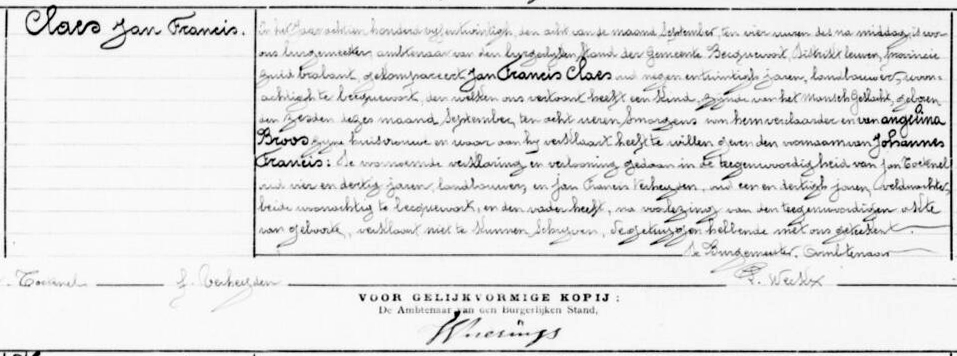 Claes Jan Francis.
In het jaar achtien honderd vyfentwintigh, den acht van de maand September, ten vier uren des na middag, is voor
ons burgemeester, ambtenaar van den burgerlyken stand der Gemeente Becquevort, Distrikt leuven, provincie
zuid brabant, gekompareert Jan Francis Claes oud negen en twintigh jaren, landbouwer, woon-
achtigh te becquevort, den welken ons vertoont heeft een kind, zynde van het Mannelyk Geslacht, geboren
den zesden dezes maand September, ten acht uren smorgens van hem verclaarder en van angelina
Broos zyne huisvrouwe en waar aan hy verklaart heeft te willen geven den voornaam van Johannes
Francis: de voornoemde verklaring en vertooning gedaan in de teegenwoordigheid van Jan Tocknel
oud vier en dertig jaren, landbouwer, en Jan Francis Verheyden, oud een en dertigh jaren, veldwachter,
beide woonachtig te becquevort, en den vader heeft, na voorlezing van den teegenwoordigen akte
van geboorte, verklaart niet te kunnen schryven, de getuygen hebbende met ons geteekent.
de Burgemeester, Ambtenaar
Tocknel J. Verheyden
VOOR GELIJKVORMIGE KOPIJ:
De Ambtenaar van den Burgerlijken Stand,